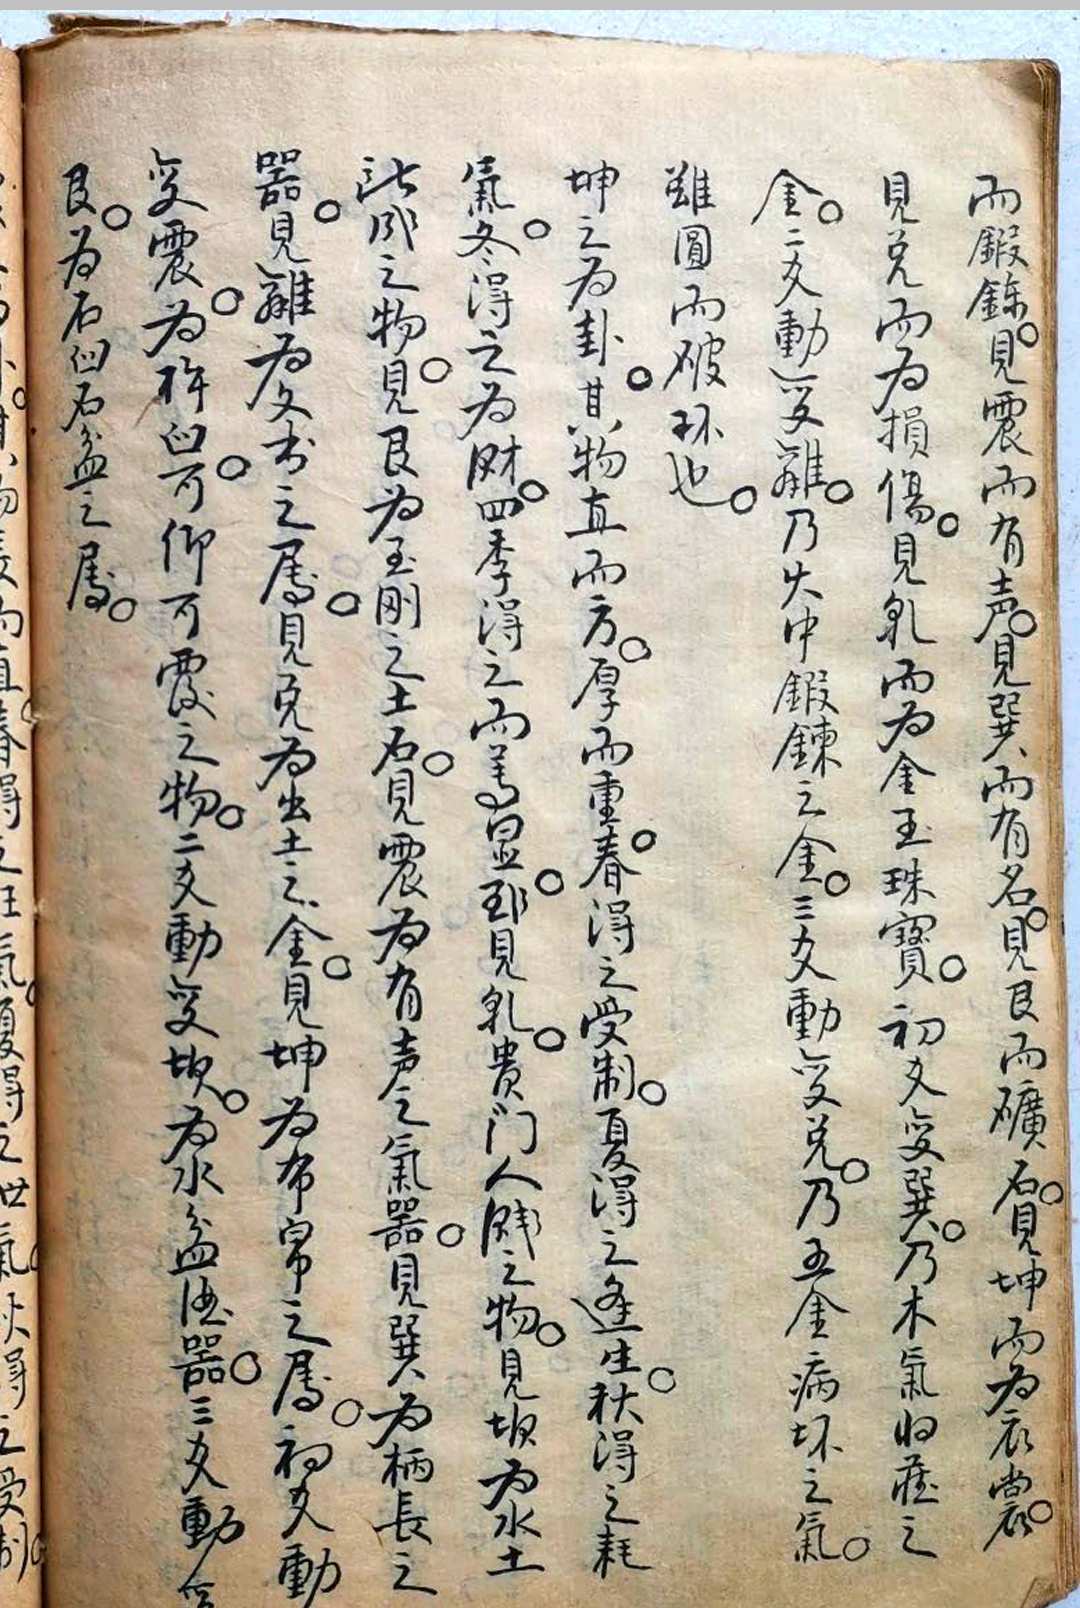 而鍛鍊。見震而有声。見巽而有名。見艮而礦石。見坤而為衣裳。
見兌而為損傷。見乹而為金玉珠寶。初爻变巽。乃木氣归藏之
金。二爻動变離。乃火中鍛鍊之金。三爻動变兌。乃五金病坏之氣。
雖圓而破环也。
坤之為卦。其物直而方。厚而重。春得之受制。夏得之逢生。秋得之耗
氣。冬得之為財。四季得之而為显。到見乹。貴门人賤之物。見坎為水土
。此卧之物。見艮為至刚之土石。見震為有声之氣器。見巽為柄長之
器。見離為文书之属。見兌為出土之金。見坤為布帛之属。初爻動
变震。為杵臼。可仰可覆之物。二爻動变坎。為水盆酒器。三爻動变
艮。為石臼石盆之属。